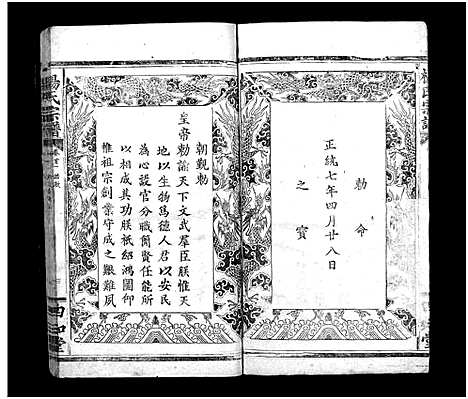 楊氏宗譜
勅命
正統七年四月廿八日
之寶
朝覲勅
皇帝勅諭天下文武羣臣朕惟天
地以生物爲德人君以安民
爲心設官分職簡賢任能所
以相成其功朕祇紹鴻圖仰
惟祖宗創業守成之艱難夙
楊氏宗譜
四知堂